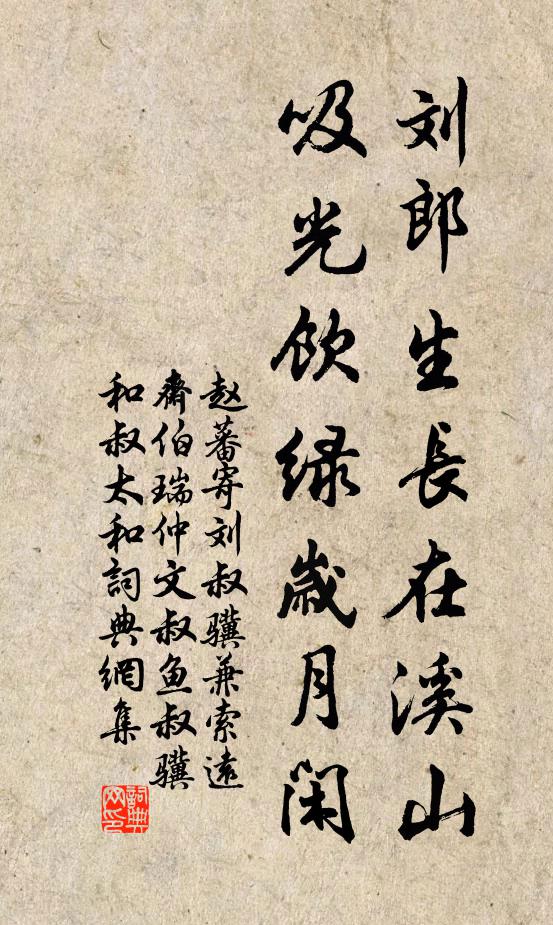 刘郎生長在溪山
吸光饮绿歲月闲
赵蕃寄刘叔骥兼索遠
齋伯瑞仲文叔鱼叔骥
和叔太和詞典網集
詞典网印